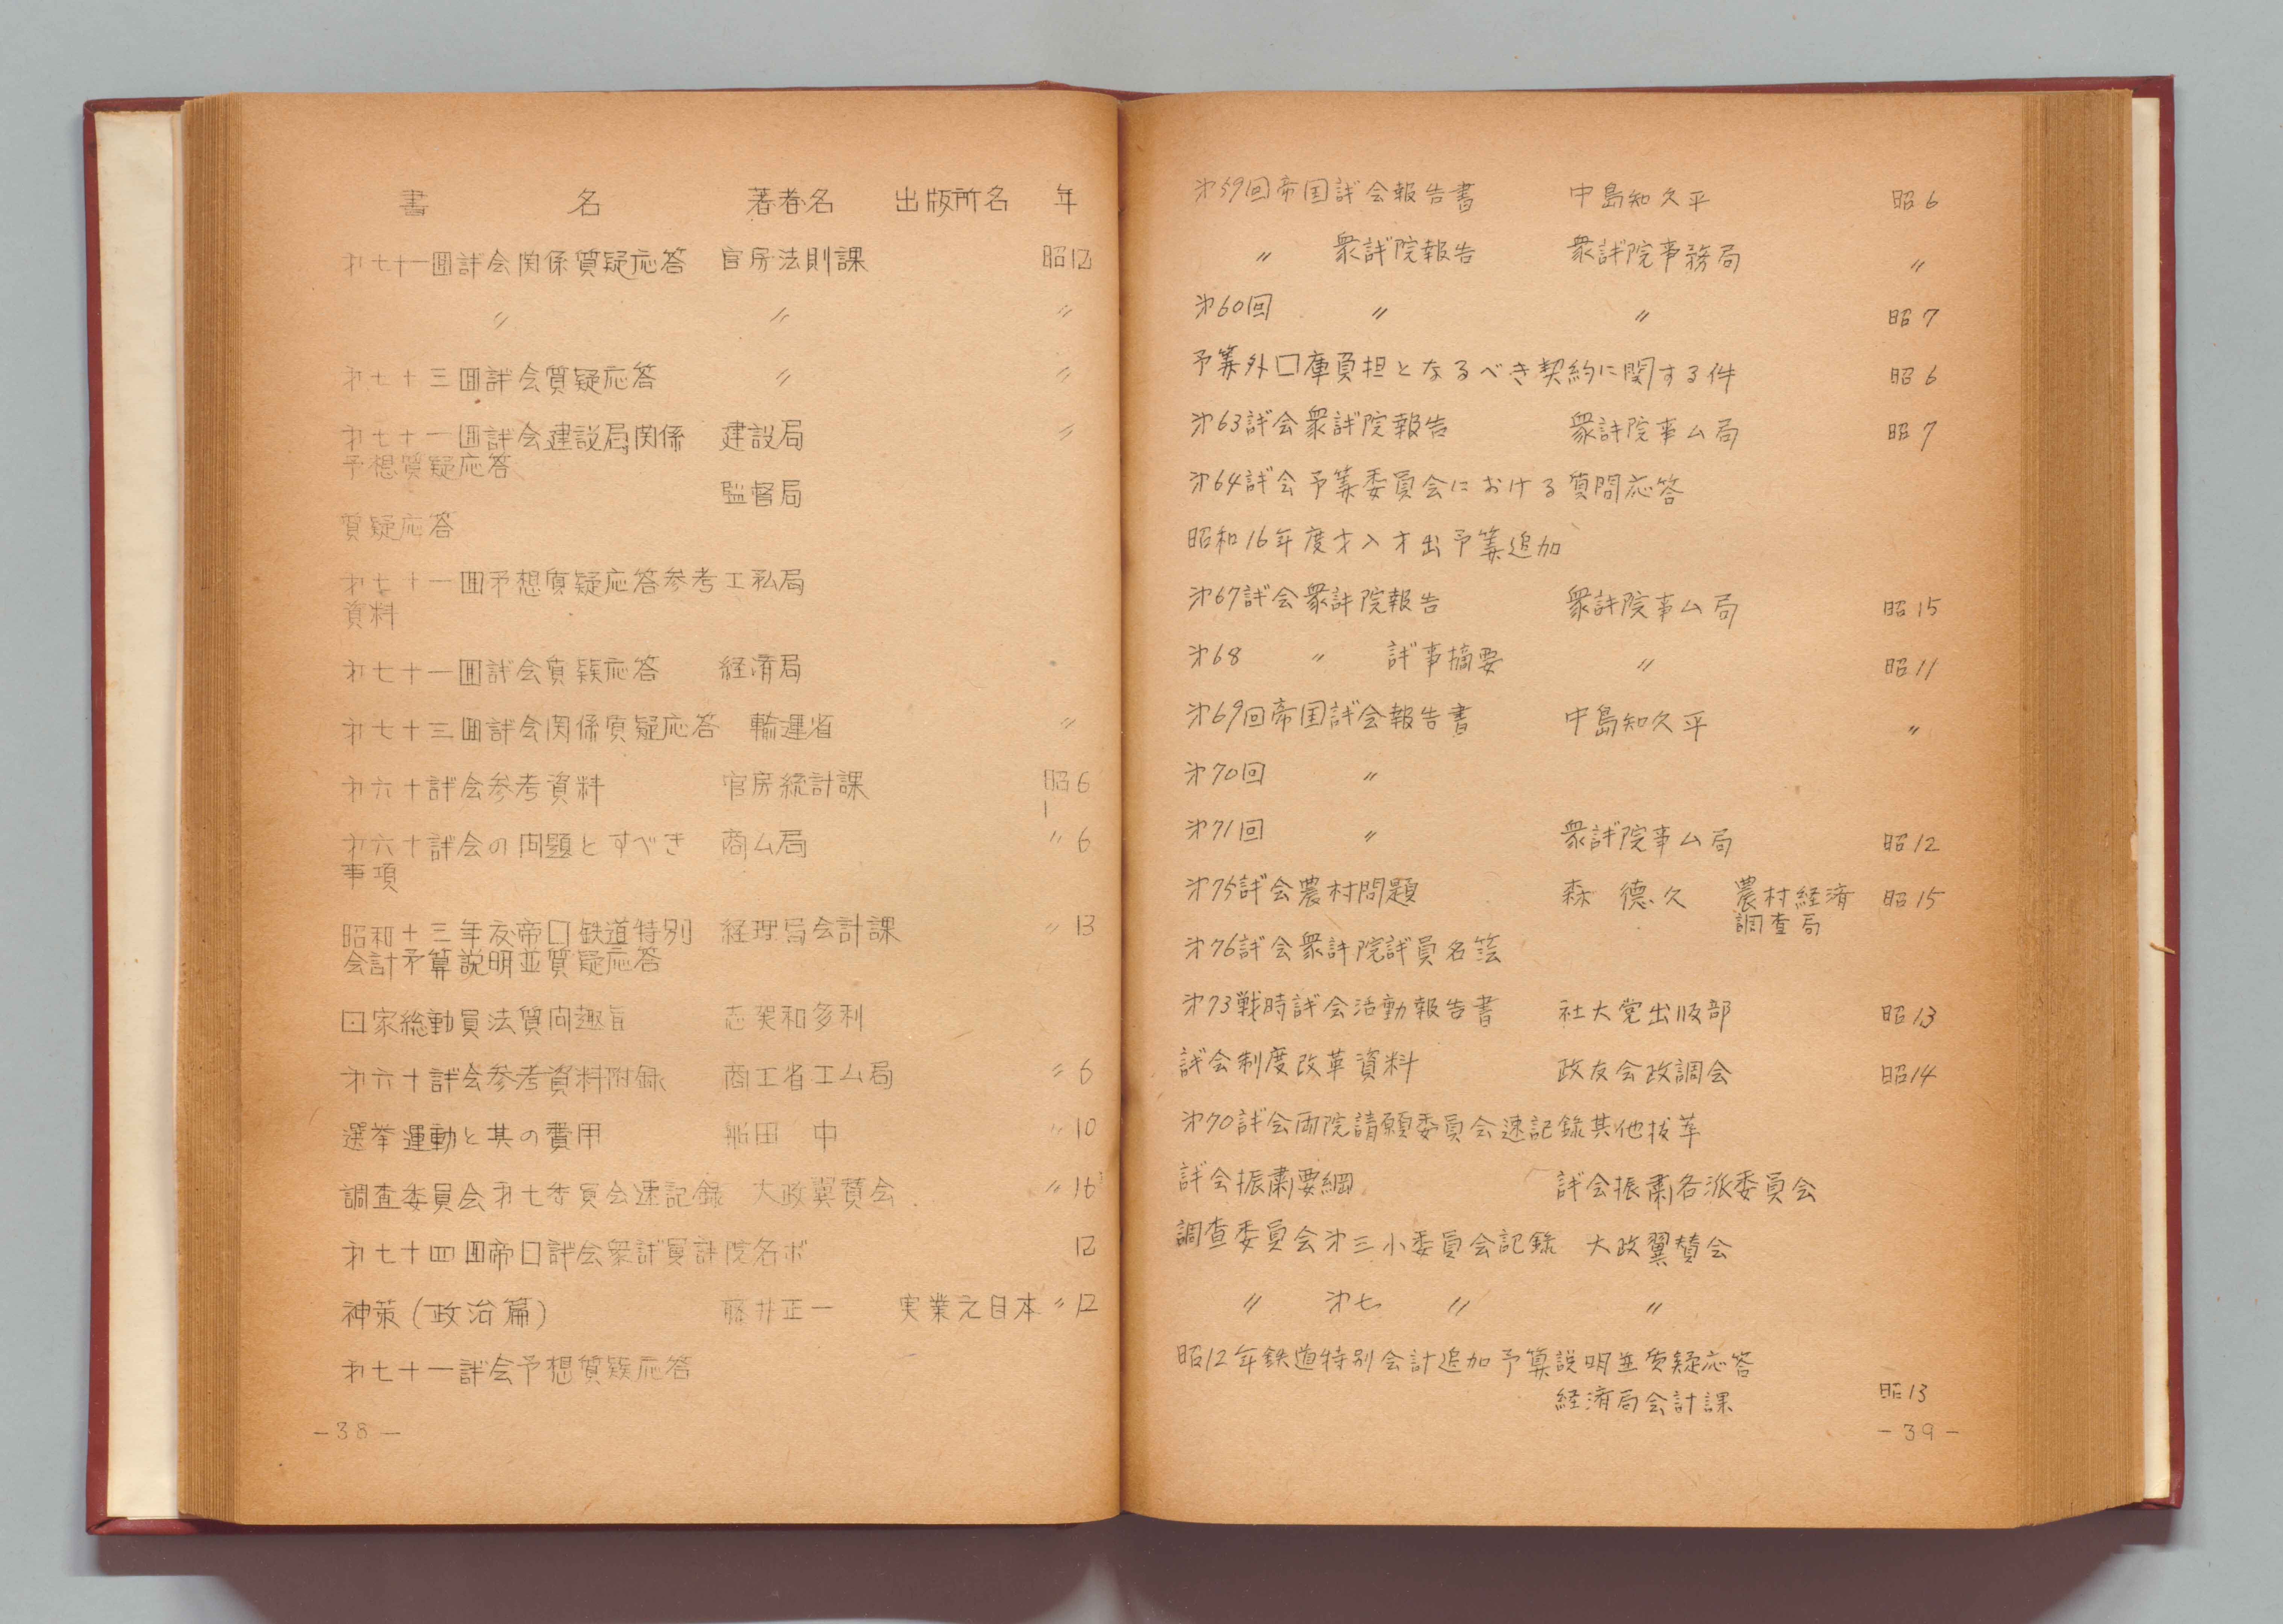 書 名 著者名 出版所名 年
才七十一囬議会関係質疑応答 官房法則課 昭12
〃 〃 〃
才七十三囬議会質疑応答 〃 〃
才七十一囬議会建設局関係 建設局 〃
予想質疑応答
監督局
質疑応答
才七十一囬予想質疑応答参考 工私局
資料
才七十一囬議会質疑応答 経済局
才七十三囬議会関係質疑応答 輸運省 〃
才六十議会参考資料 官房統計課 昭6
才六十議会の問題とすべき 商ム局 〃6
事項
昭和十三年度帝囗鉄道特別 経理局会計課 〃13
会計予算説明並質疑応答
囗家総動員法質問趣旨 志架和多利
才六十議会参考資料附録 商工省工ム局 〃6
選挙運動と其の費用 船田 中 〃10
調査委員会才七委員会速記録 大政翼賛会 〃16
才七十四囬帝囗議会衆議員議院名ボ 12
神策(政治篇) 藤井正一 実業之日本 〃12
才七十一議会予想質疑応答
-38-
才59回帝国議会報告書 中島知久平 昭6
〃 衆議院報告 衆議院事務局 〃
才60回 〃 〃 昭7
予算外囗庫負担となるべき契約に関する件 昭6
才63議会衆議院報告 衆議院事ム局 昭7
才64議会予算委員会における質問応答
昭和16年度才入才出予算追加
才67議会衆議院報告 衆議院事ム局 昭15
才68 〃 議事摘要 〃 昭11
才69回帝国議会報告書 中島知久平 〃
才70回 〃
才71回 〃 衆議院事ム局 昭12
才75議会農村問題 森 徳久 農村経済 昭15
調査局
才76議会衆議院議員名簿
才73戦時議会活動報告書 社大党出版部 昭13
議会制度改革資料 政友会政調会 昭14
才70議会両院請願委員会速記録其他抜萃
議会振粛要綱 議会振粛各派委員会
調査委員会才三小委員会記録 大政翼賛会
〃 才七 〃 〃
昭12年鉄道特別会計追加予算説明並質疑応答
経済局会計課 昭13
-39-